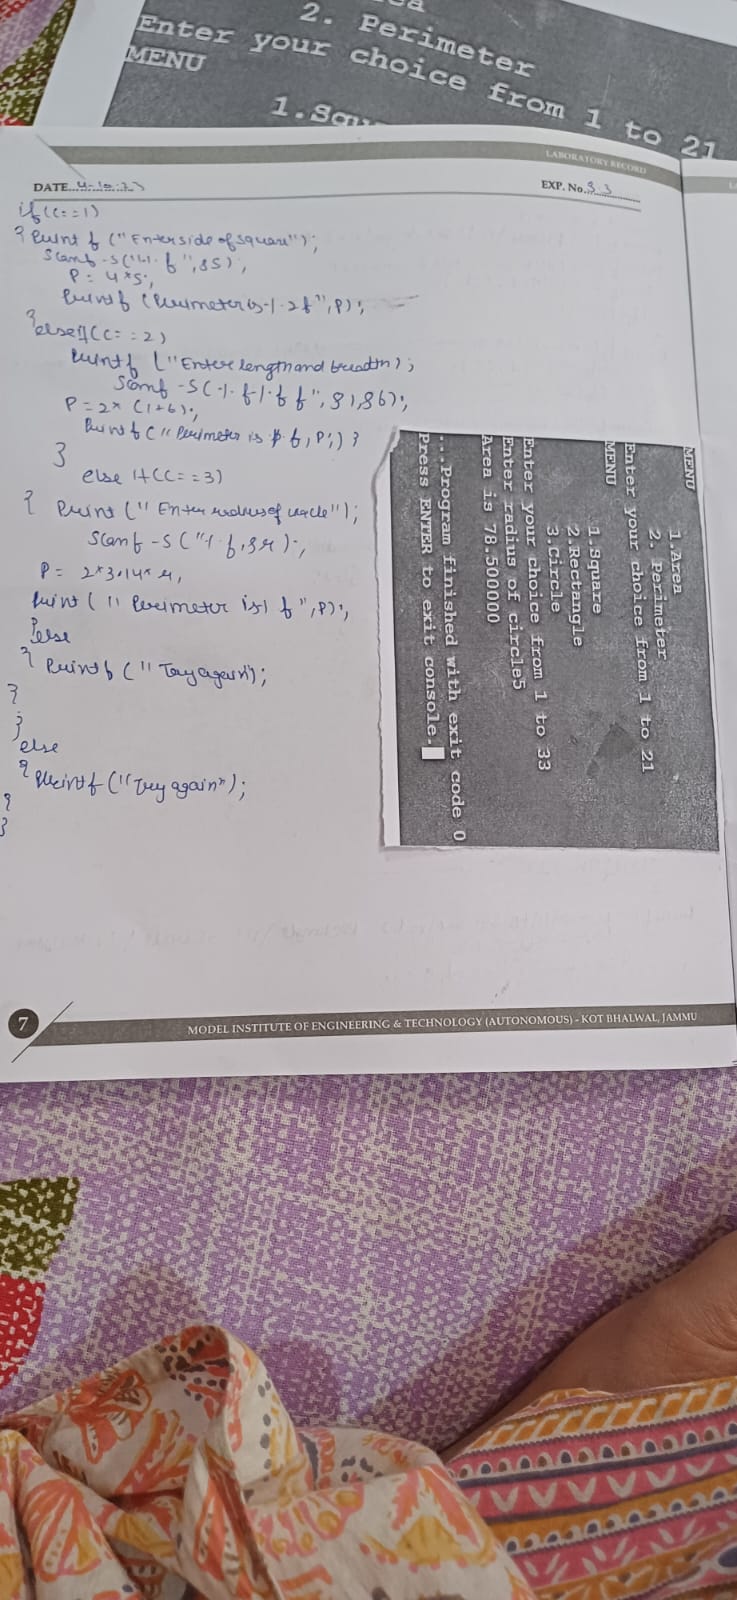 2. Perimeter
Enter your choice from 1 to 21
MENU
1.Squ
LABORATORY RECORD
DATE 4-10-23
EXP. No. 3.3
if(c==1)
{ Printf ("Enter side of square");
Scanf-s("%f",&s);
P = 4*s;
Printf (Perimeter is %.2f",P);
}else if(c==2)
Printf ("Enter length and breadth);
Scanf-s(%f%f f",&l,&b);
P=2*(l+b);
Printf(" Perimeter is f,P;)}
}
else if(c==3)
{ Print (" Enter radius of circle");
Scanf-s("%f,&r);
P= 2*3.14*r,
Print (" Perimeter is% f",P);
}else
{ Printf (" Try again");
}
}
else
{ Printf ("Try again");
}
}
MENU
1.Area
2. Perimeter
Enter your choice from 1 to 21
MENU
1.Square
2.Rectangle
3.Circle
Enter your choice from 1 to 33
Enter radius of circle5
Area is 78.500000
...Program finished with exit code 0
Press ENTER to exit console.
7
MODEL INSTITUTE OF ENGINEERING & TECHNOLOGY (AUTONOMOUS) - KOT BHALWAL, JAMMU